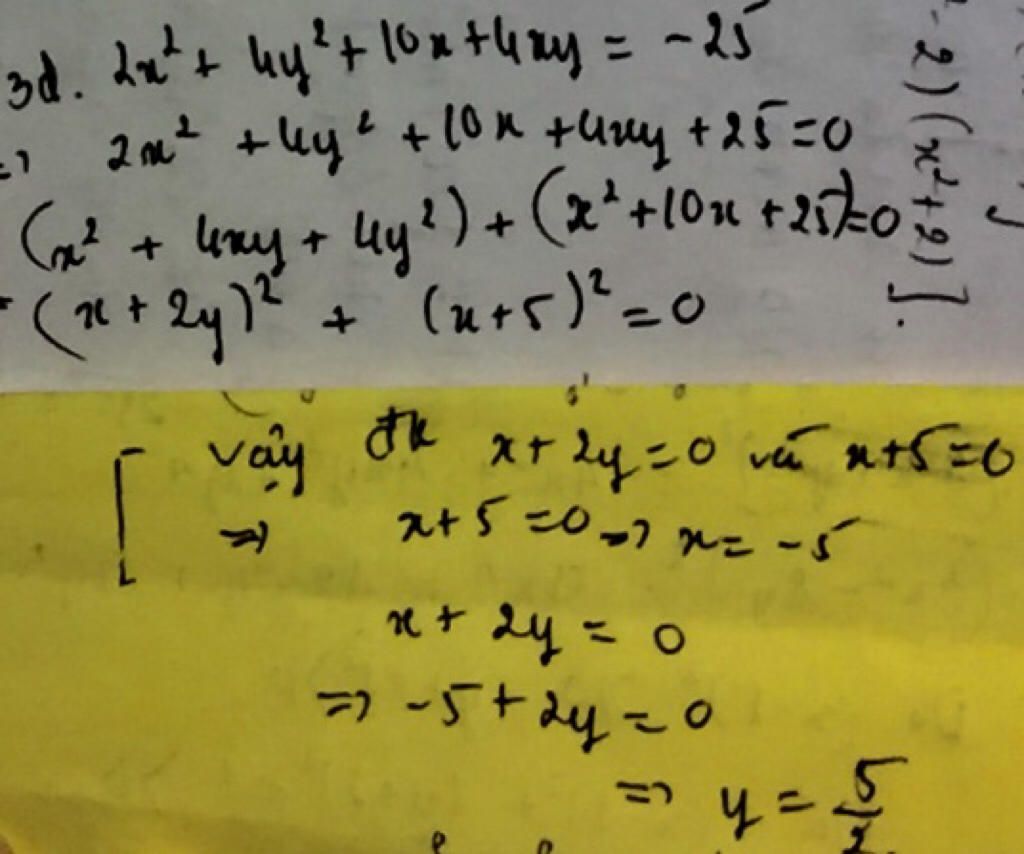 3d. 2x² + 4y² + 10x + 4xy = -25
=> 2x² + 4y² + 10x + 4xy + 25 = 0
(x² + 4xy + 4y²) + (x² + 10x + 25) = 0
(x + 2y)² + (x + 5)² = 0
vậy đk x + 2y = 0 và x + 5 = 0
=> x + 5 = 0 => x = -5
x + 2y = 0
=> -5 + 2y = 0
=> y = 5/2
2)(x² + 2)].